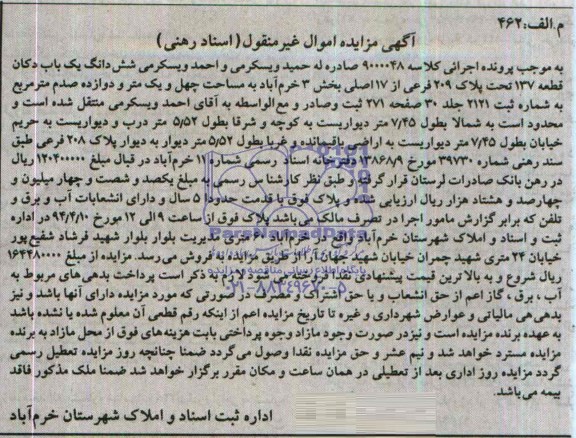 م.الف:۴۶۲
آگهی مزایده اموال غیرمنقول( اسناد رهنی )
به موجب پرونده اجرائی کلاسه ۹۰۰۰۰۴۸ صادره له حمید ویسکرمی و احمد ویسکرمی شش دانگ یک باب دکان
قطعه ۱۳۷ تحت پلاک ۲۰۹ فرعی از ۱۷اصلی بخش ۳ خرم‌آباد به مساحت چهل و یک متر و دوازده صدم مترمربع
به شماره ثبت ۲۱۲۱ جلد ۳۰ صفحه ۲۷۱ ثبت وصادر و مع‌الواسطه به آقای احمد ویسکرمی منتقل شده است و
محدود است به شمالا بطول ۷٫۴۵ متر دیواریست به کوچه و شرقا بطول ۵٫۵۲ متر درب و دیواریست به حریم
خیابان بطول ۷٫۴۵ متر دیواریست به اراضی باقیمانده و غربا بطول ۵٫۵۲ متر دیوار به دیوار پلاک ۲۰۸ فرعی طبق
سند رهنی شماره ۳۹۷۳۰ مورخ ۱۳۸۶/۸/۹ دفترخانه اسناد رسمی شماره ۱۱ خرم‌آباد در قبال مبلغ ۱۲۰۴۰۰۰۰۰ ریال
در رهن بانک صادرات لرستان قرار گرفته و طبق نظر کارشناس رسمی به مبلغ یکصد و شصت و چهار میلیون و
چهارصد و هشتاد هزار ریال ارزیابی شده و پلاک فوق با قدمت حدودا ۵ سال و دارای انشعابات آب و برق و
تلفن که برابر گزارش مامور اجرا در تصرف مالک می‌باشد پلاک فوق از ساعت ۹ الی ۱۲ مورخ ۹۴/۴/۱۰ در اداره
ثبت و اسناد و املاک شهرستان خرم‌آباد واقع در خرم‌آباد ۶۰ متری مدیریت بلوار بلوار شهید فرشاد شفیع‌پور
خیابان ۲۴ متری شهید چمران خیابان شهید از طریق مزایده به فروش می‌رسد. مزایده از مبلغ ۱۶۴۴۸۰۰۰۰
ریال شروع و به بالاترین قیمت پیشنهادی نقدا فروخته می‌شود لازم به ذکر است پرداخت بدهی‌های مربوط به
آب ، برق ، گاز اعم از حق انشعاب و یا حق اشتراک و مصرف در صورتی که مورد مزایده دارای آنها باشد و نیز
بدهی هی مالیاتی و عوارض شهرداری و غیره تا تاریخ مزایده اعم از اینکه رقم قطعی آن معلوم شده یا نشده باشد
به عهده برنده مزایده است و نیزدر صورت وجود مازاد وجوه پرداختی بابت هزینه‌های فوق از محل مازاد به برنده
مزایده مسترد خواهد شد و نیم عشر و حق مزایده نقدا وصول می‌گردد ضمنا چنانچه روز مزایده تعطیل رسمی
گردد مزایده روز اداری بعد از تعطیلی در همان ساعت و مکان مقرر برگزار خواهد شد ضمنا ملک مذکور فاقد
بیمه می‌باشد.
اداره ثبت اسناد و املاک شهرستان خرم‌آباد
ParsNamadData
پایگاه اطلاع رسانی مناقصه و مزایده
۰۲۱-۸۸۳۴۹۶۷۰-۵